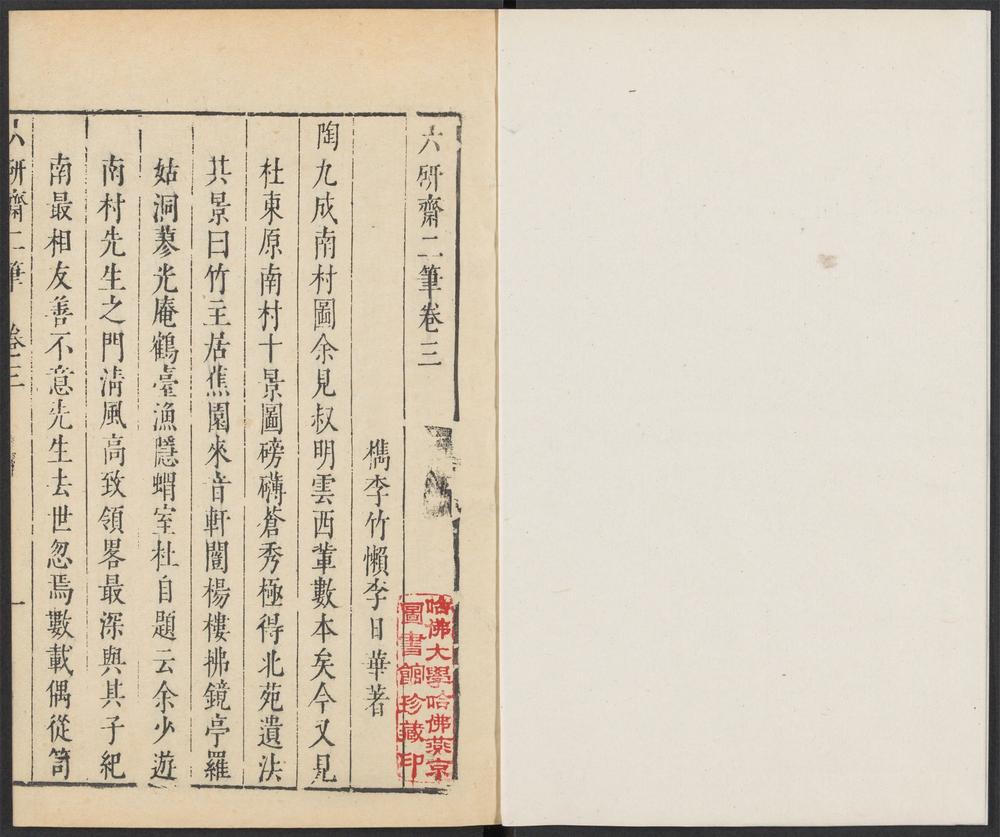 六硏齋二筆卷三
檇李竹懶李日華著
陶九成南村圖余見叔明雲西軰數本矣今又見
杜東原南村十景圖磅礴蒼秀極得北苑遺法
其景曰竹主居蕉園來音軒闓楊樓拂鏡亭羅
姑洞蓼光庵鶴臺漁隱蝟室杜自題云余少遊
南村先生之門淸風高致領畧最深與其子紀
南最相友善不意先生去世忽焉數載偶從笥
六硏齋二筆 卷三 一
哈佛大學哈佛燕京
圖書館珍藏印